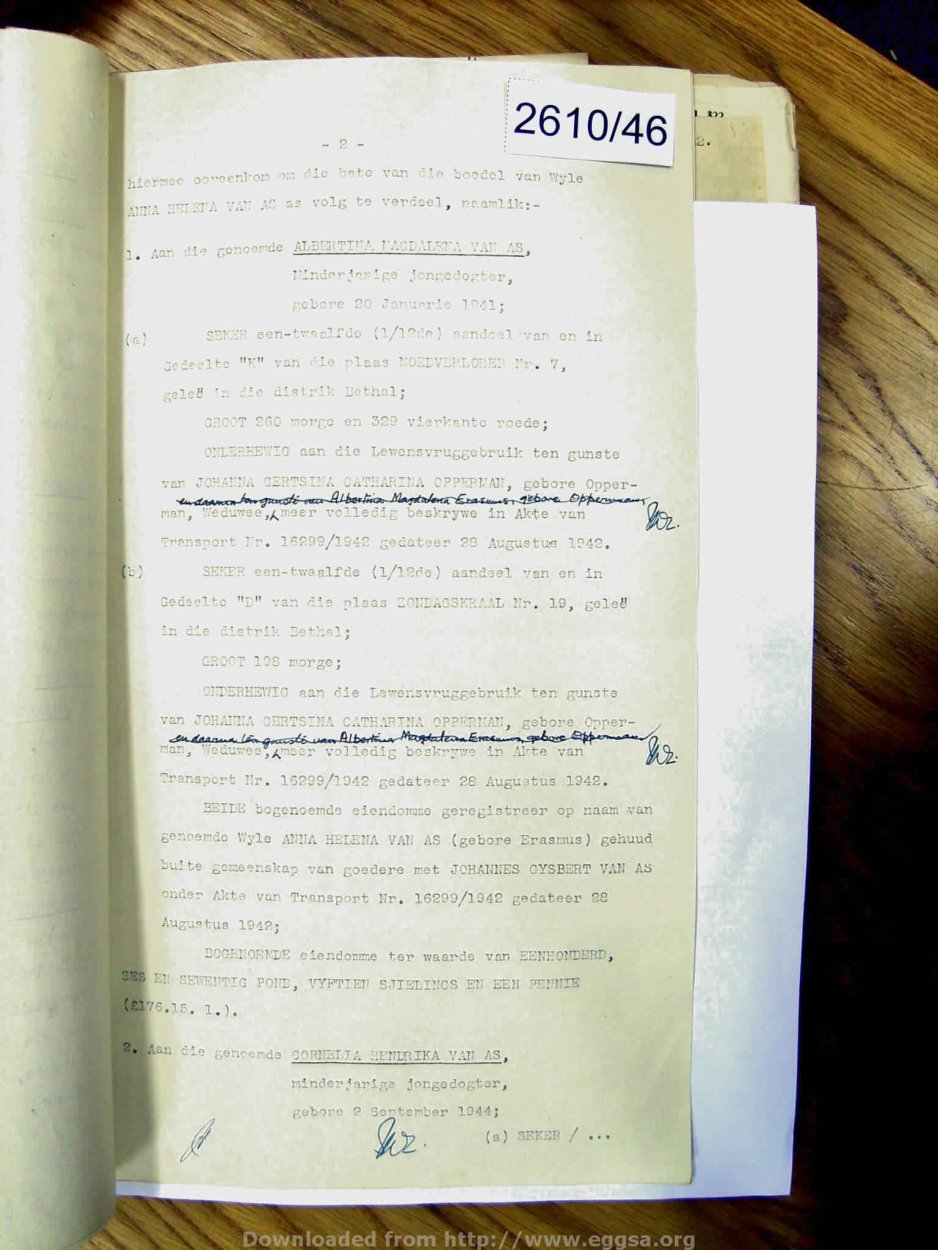 2610/46
- 2 -
2.
hiermee ooreenkom om die bate van die boedel van Wyle
ANNA HELENA VAN AS as volg te verdeel, naamlik:-
1. Aan die genoemde ALBERTINA MAGDALENA VAN AS,
Minderjarige jongedogter,
gebore 20 Januarie 1941;
(a) SEKER een-twaalfde (1/12de) aandeel van en in
Gedeelte "K" van die plaas MOEDVERLOREN Nr. 7,
geleë in die distrik Bethal;
GROOT 260 morge en 329 vierkante roede;
ONDERHEWIG aan die Lewensvruggebruik ten gunste
van JOHANNA GERTSINA CATHARINA OPPERMAN, gebore Opper-
en daarna ten gunste van Albertina Magdalena Erasmus, gebore Oppermann,
man, Weduwee, meer volledig beskrywe in Akte van
Transport Nr. 16299/1942 gedateer 28 Augustus 1942.
(b) SEKER een-twaalfde (1/12de) aandeel van en in
Gedeelte "D" van die plaas ZONDAGSKRAAL Nr. 19, geleë
in die distrik Bethal;
GROOT 108 morge;
ONDERHEWIG aan die Lewensvruggebruik ten gunste
van JOHANNA GERTSINA CATHARINA OPPERMAN, gebore Opper-
en daarna ten gunste van Albertina Magdalena Erasmus, gebore Oppermann
man, Weduwee, meer volledig beskrywe in Akte van
Transport Nr. 16299/1942 gedateer 28 Augustus 1942.
BEIDE bogenoemde eiendomme geregistreer op naam van
genoemde Wyle ANNA HELENA VAN AS (gebore Erasmus) gehuud
buite gemeenskap van goedere met JOHANNES GYSBERT VAN AS
onder Akte van Transport Nr. 16299/1942 gedateer 28
Augustus 1942;
BOGENOEMDE eiendomme ter waarde van EENHONDERD,
SES EN SEWENTIG POND, VYFTIEN SJIELINGS EN EEN PENNIE
(£176.15. 1.).
2. Aan die genoemde CORNELIA HENDRIKA VAN AS,
minderjarige jongedogter,
gebore 2 September 1944;
(a) SEKER / ...
Downloaded from http://www.eggsa.org